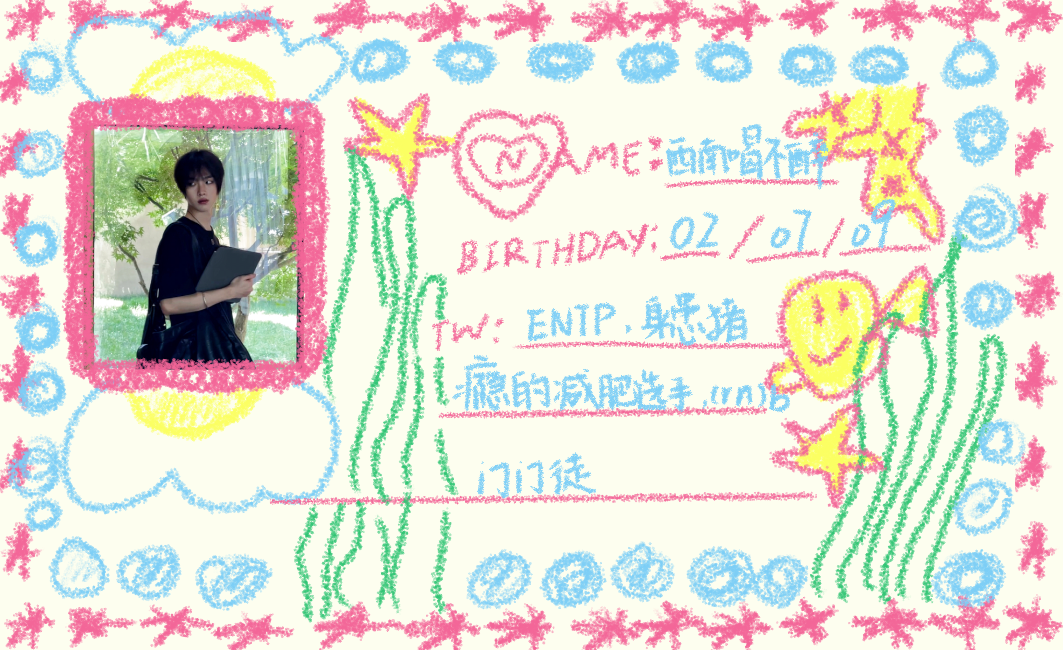 NAME: 西南唱不醉
BIRTHDAY: 02/07/09
TW: ENTP, 身患猪
瘾的减肥选手,(rn)
门门徒